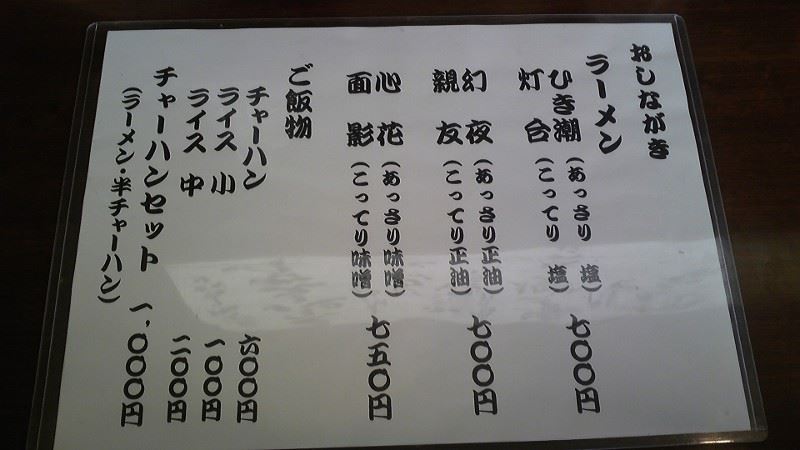 おしながき
ラーメン
ひき潮（あっさり 塩）
灯 台（こってり 塩） 七〇〇円
幻 夜（あっさり正油）
親 友（こってり正油） 七〇〇円
心 花（あっさり味噌）
面 影（こってり味噌） 七五〇円
ご飯物
チャーハン 六〇〇円
ライス 小 一〇〇円
ライス 中 二〇〇円
チャーハンセット 一,〇〇〇円
（ラーメン・半チャーハン）